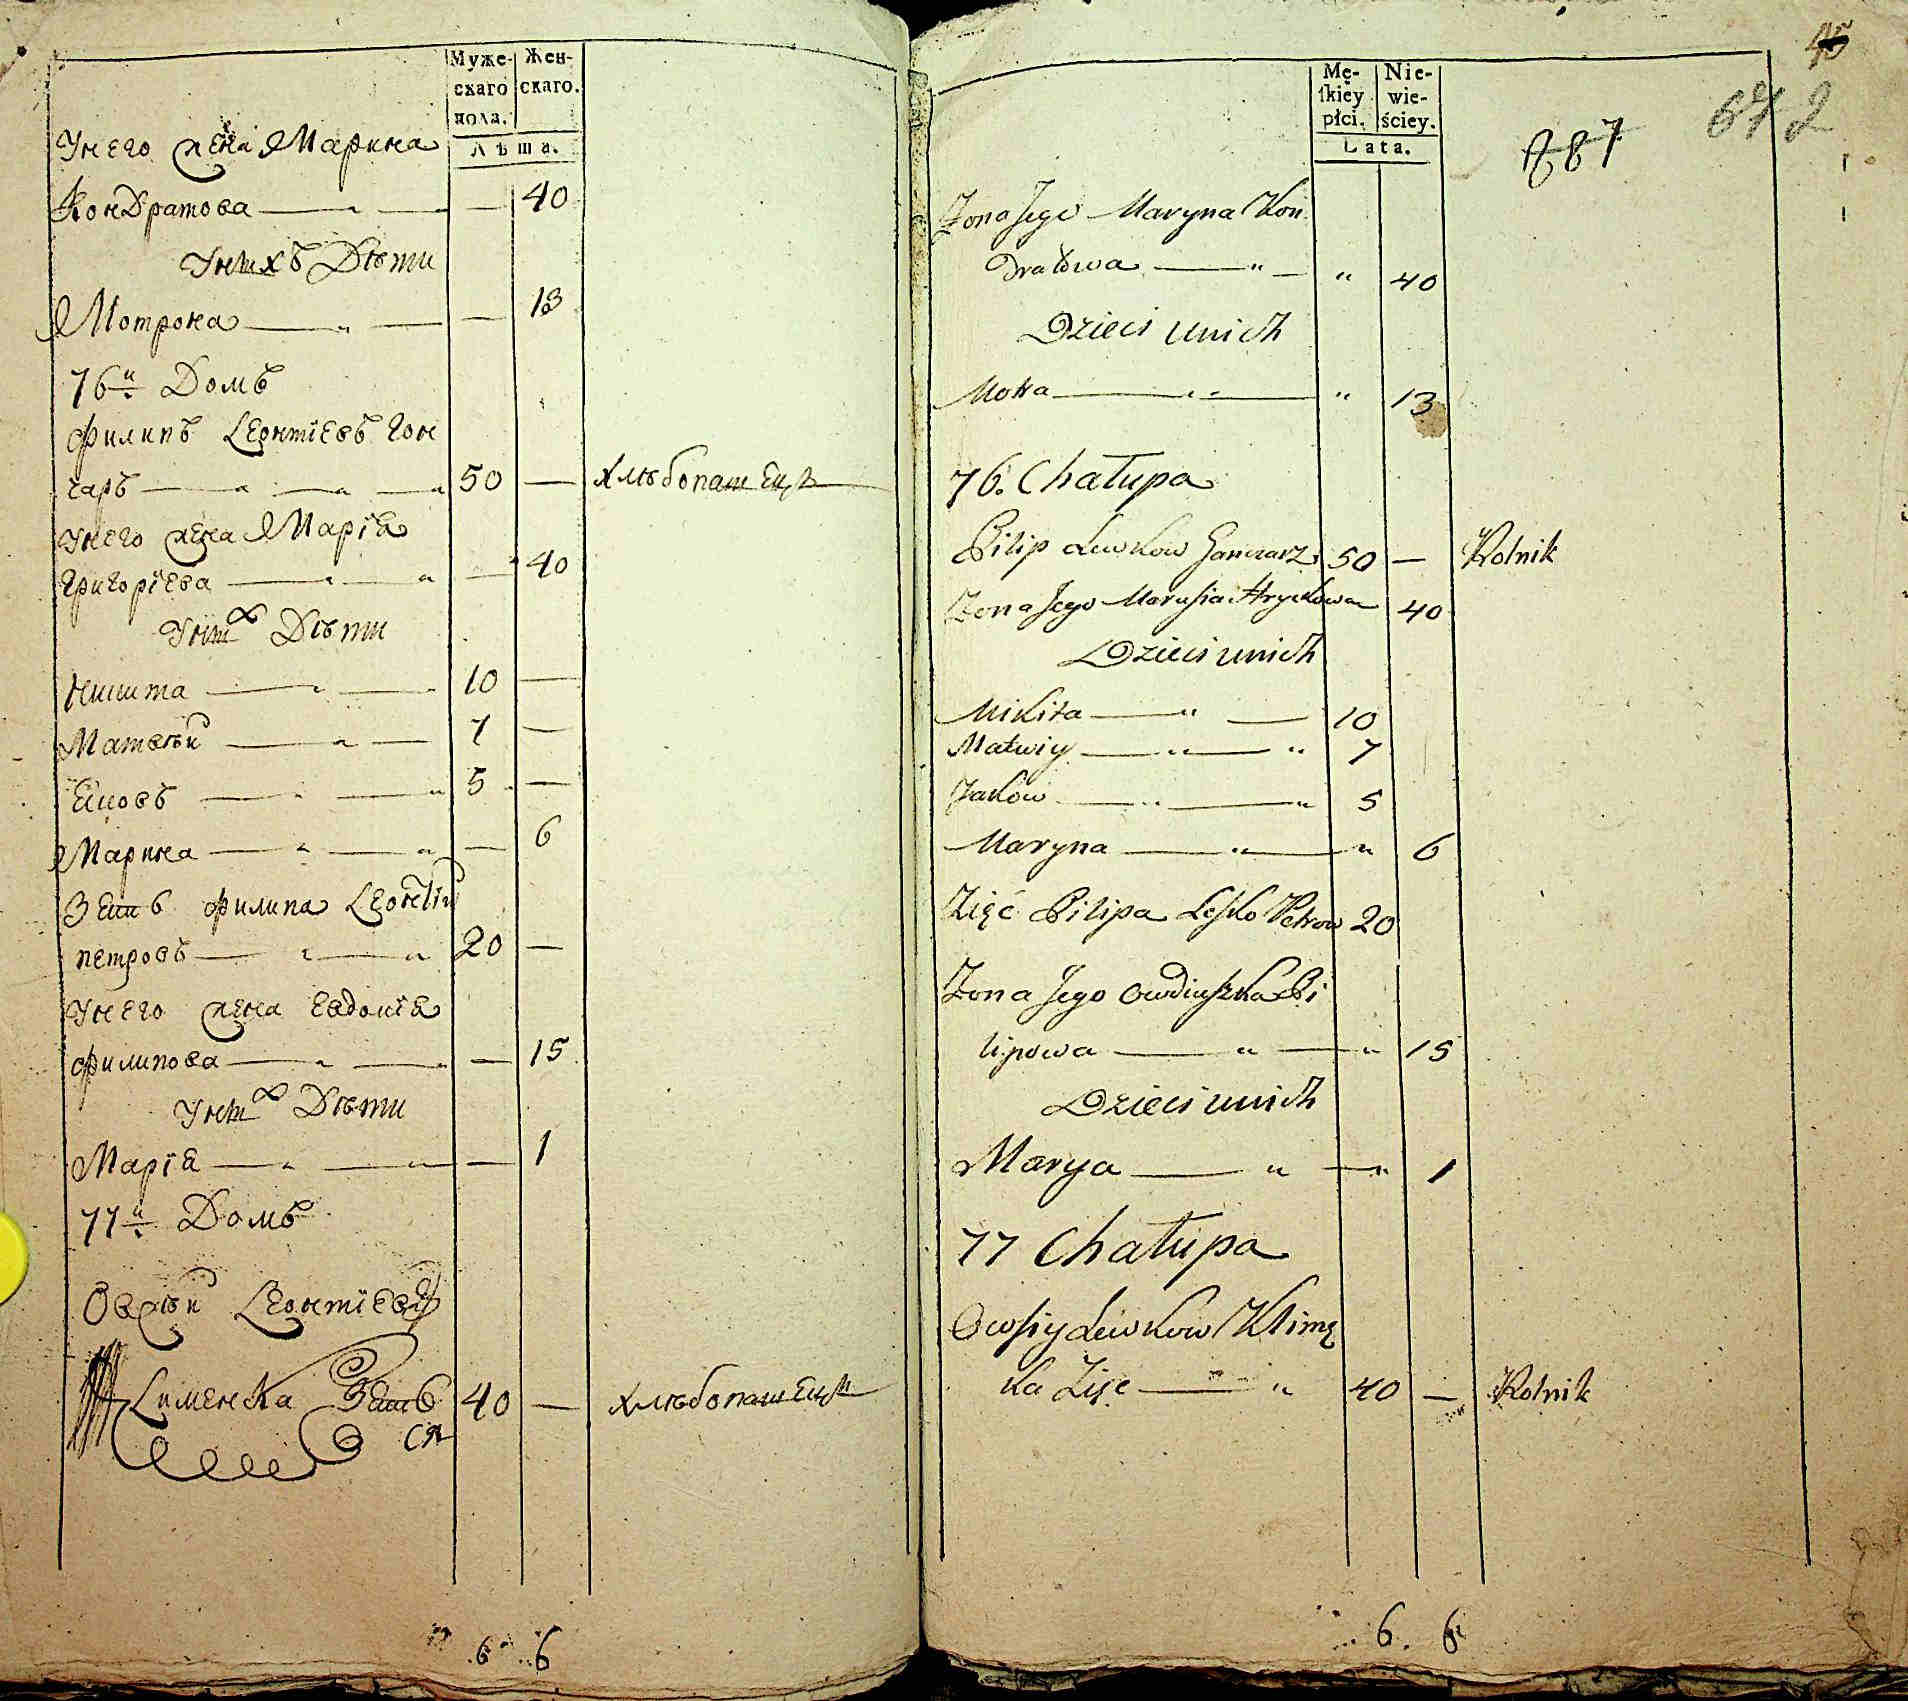 Муже- Жен-
скаго скаго.
пола.
Лѣта.
Унего жена Марина
Кондратова — „ — — 40
Унихъ Дѣти
Мотрона — „ — — 13
76й Домъ
Филипъ Леонтіевъ Гон
чаръ — „ — „ — „ 50 — хлѣбопашецъ
Унего жена Марія
Григоріева — „ — „ — 40
Унихъ Дѣти
Никита — „ — 10 —
Матвѣй — „ — 7 —
Яковъ — „ — „ 5 —
Марина — „ — „ — 6
Зять Филипа Леонтій
петровъ — „ — „ 20 —
Унего жена Евдокія
Филипова — „ — „ — 15
Унихъ Дѣти
Марія — „ — „ — 1
77й Домъ
Овсѣй Леонтіевъ
Клименка Зять 40 — хлѣбопашецъ
6 6
45
642
887
Mę- Nie-
skiey wie-
płci. ściey.
Lata.
Zona Jego Maryna Kon
dratowa — „ — „ 40
Dzieci unich
Motra — „ — „ 13
76. Chałupa
Pilip Lewkow Ganczarz 50 — Rolnik
Zona Jego Marusia Hryckowa 40
Dzieci unich
Mikita — „ — 10
Matwiy — „ — „ 7
Jakow — „ — „ 5
Maryna — „ — „ 6
Zięć Pilipa Lesko Petrow 20
Zona Jego Owdiuszka Pi
lipowa — „ — „ 15
Dzieci unich
Marya — „ — „ 1
77 Chałupa
Owsiy Lewkow Klimę
ka Zięć — „ — „ 40 — Rolnik
6. 6